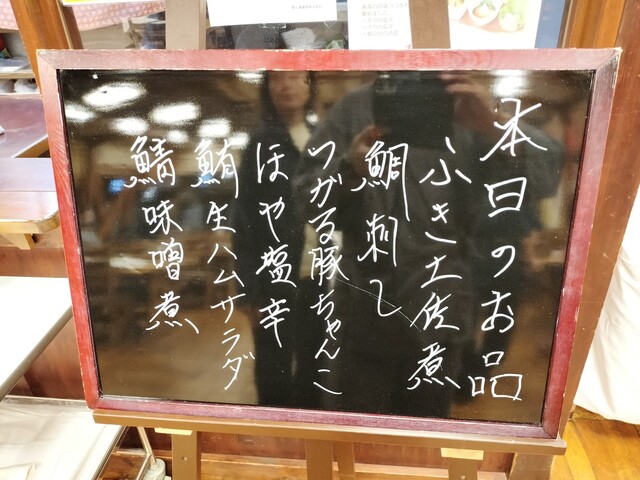 本日のお品
ふき土佐煮
鯛刺し
つがる豚ちゃんこ
ほや塩辛
鮪生ハムサラダ
鯖味噌煮